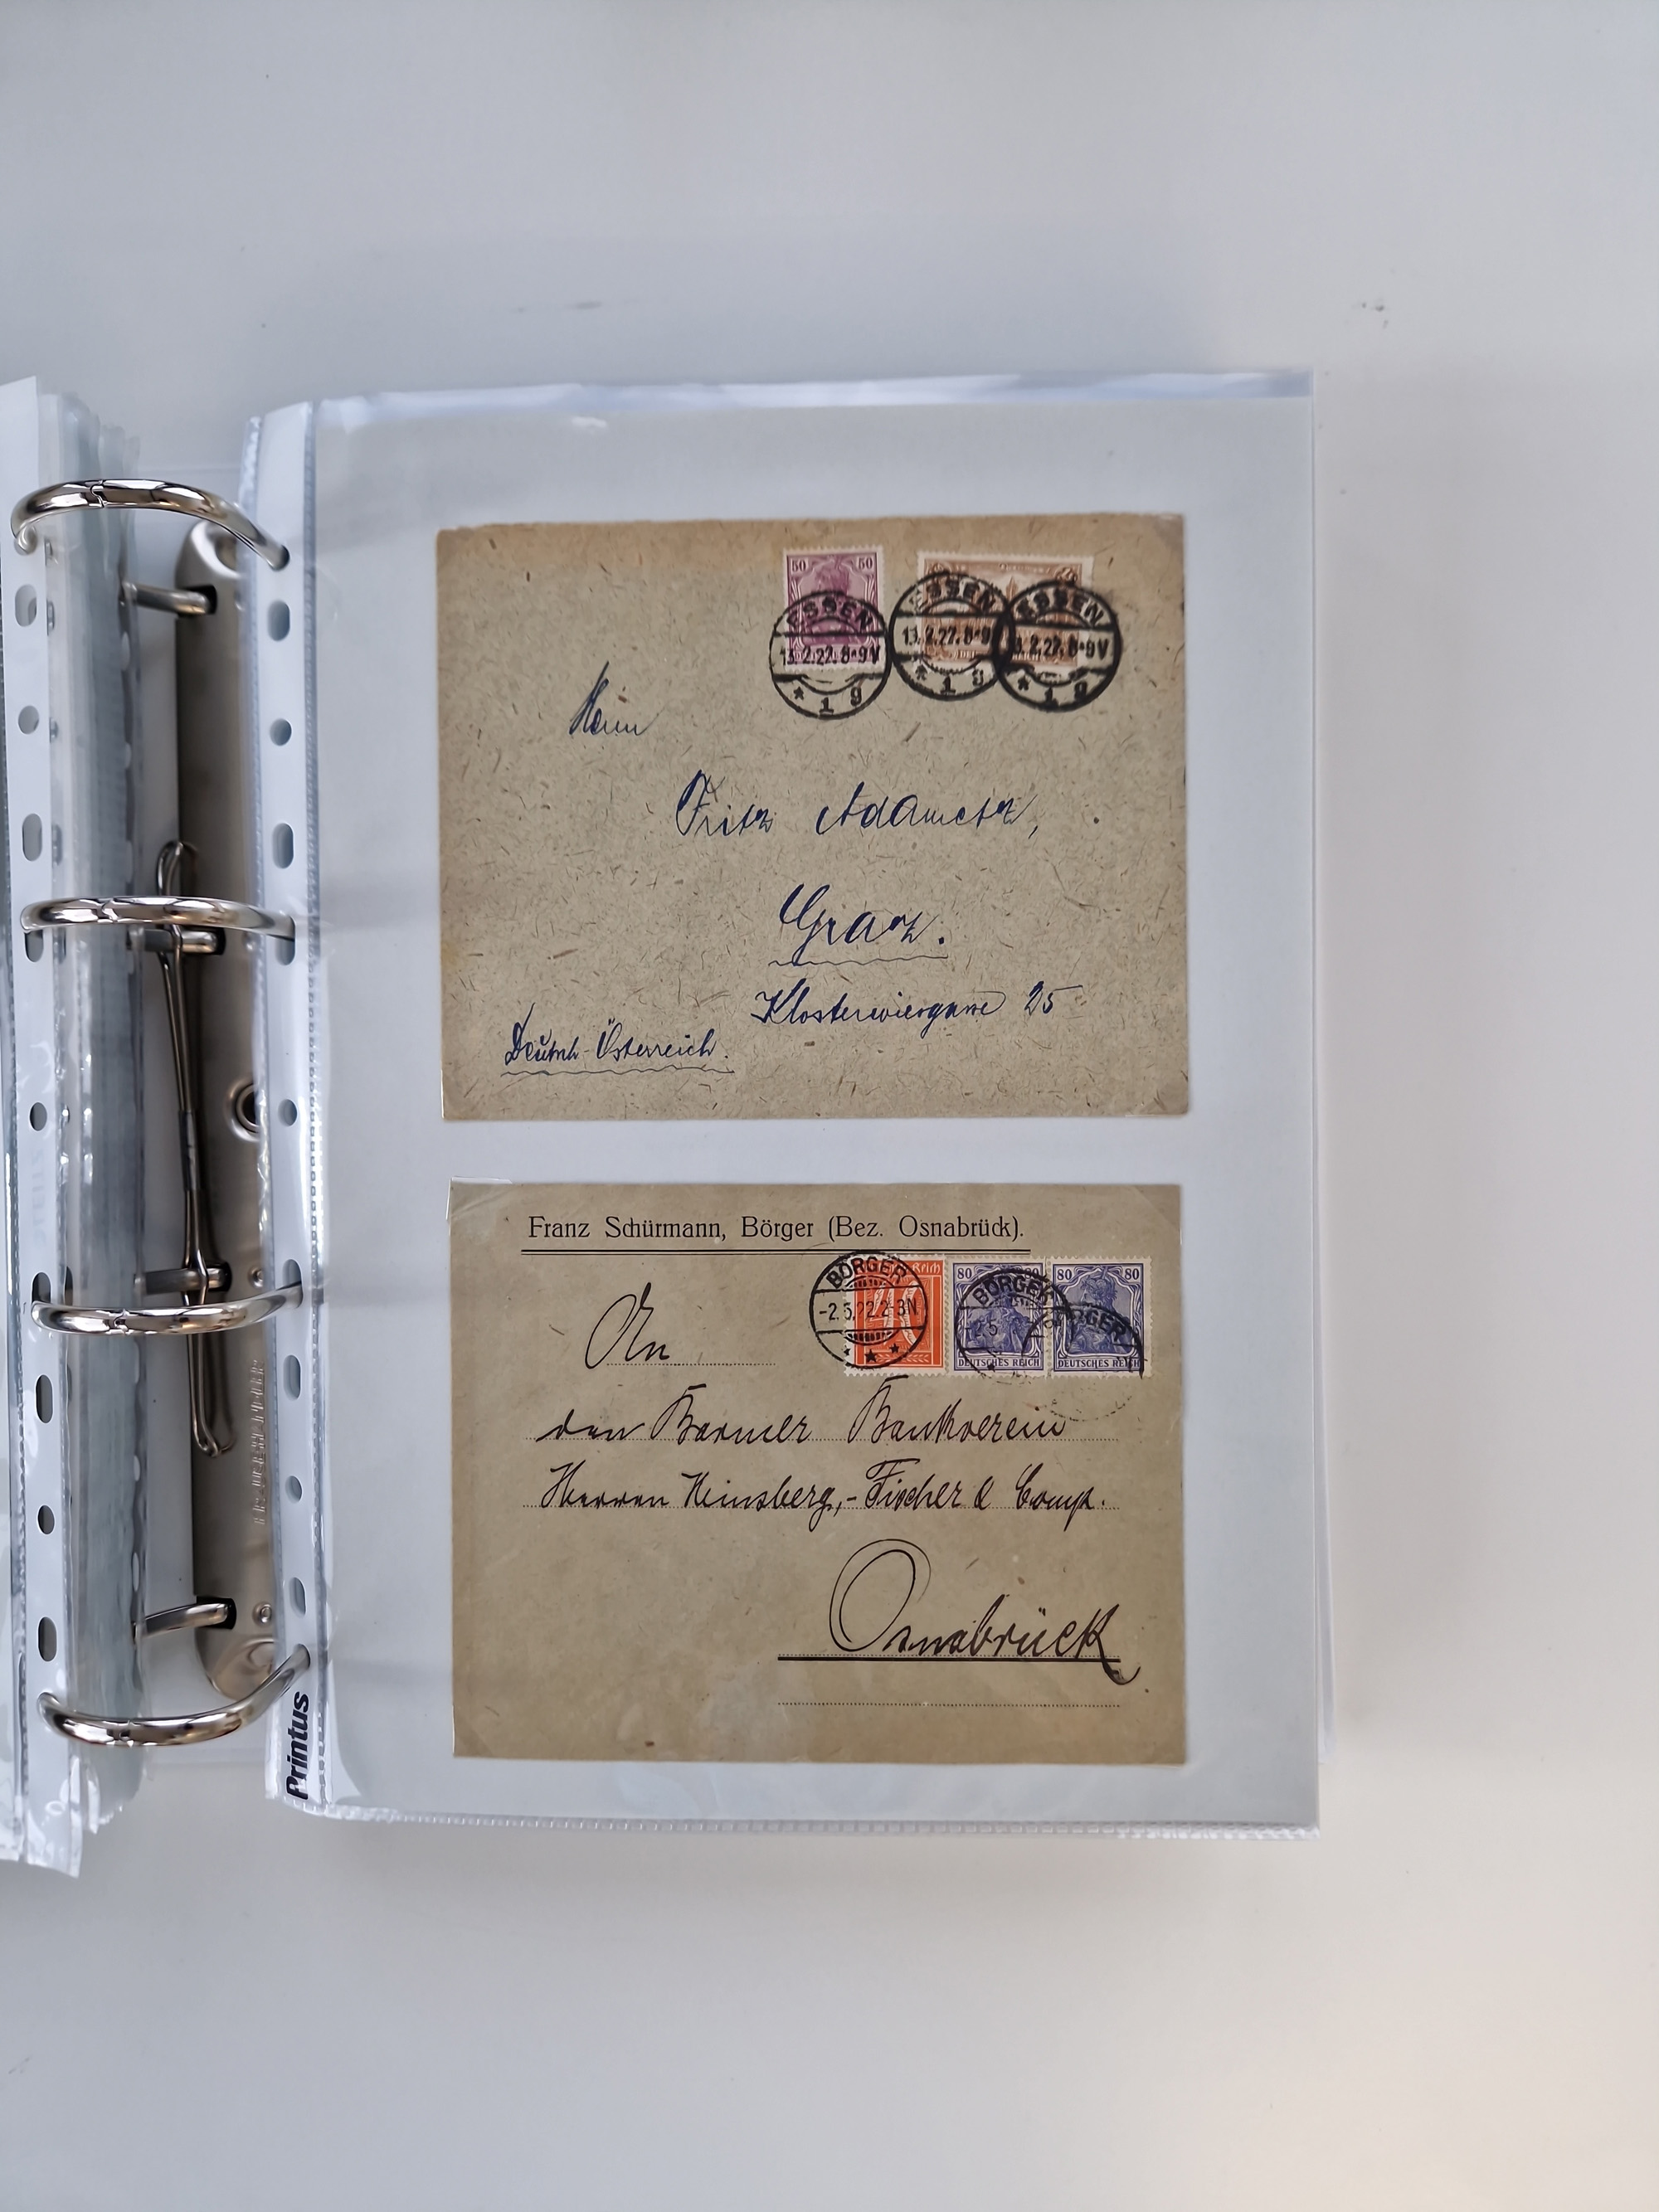 50 50
ESSEN
13.2.22.8-9V
* 1 g
ESSEN
13.2.22.8-9
* 1 g
ESSEN
13.2.22.8-9V
* 1 g
Herrn
Fritz Adametz,
Graz.
Klosterwiesgasse 25
Deutsch-Österreich.
Franz Schürmann, Börger (Bez. Osnabrück).
BÖRGER
-2.5.22.2-3N
Reich
40
80 80
DEUTSCHES REICH
BÖRGER
80 80
DEUTSCHES REICH
An
den Barmer Bankverein
Herren Hinsberg,- Fischer & Comp.
Osnabrück
Printus